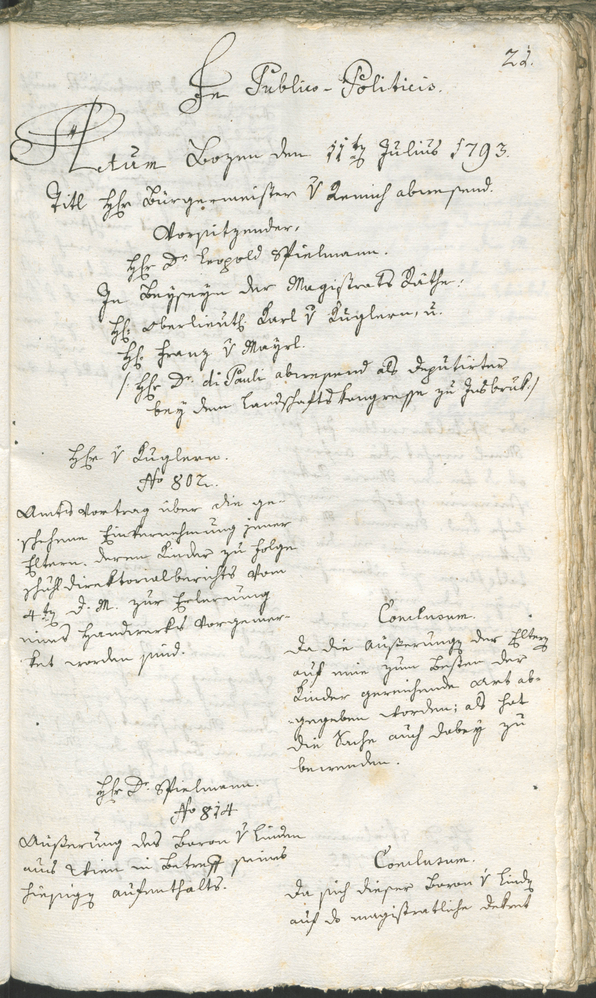 22.
In Publico-Politicis.
Actum Bozen den 11ten Julius 1793.
Titl Hhr Bürgermeister v Remich abwesend.
Vorsitzender,
Hhr Dr Leopold Spielmann.
In Beyseyn der Magistrats Räthe:
Hhr Oberlieut: Karl v Kuglern, u.
Hhr Franz v Mayrl.
/: Hhr Dr di Pauli abwesend als Deputirter
bey dem Landschaftskongresse zu Insbruk. /
Hhr v Kuglern.
No 802.
Amtsvortrag über die ge-
schehene Einvernehmung jener
Eltern, deren Kinder zu folge
schuhldirektorialberichts vom
4ten d. M. zur Erlernung
eines Handwerks vorgemer-
ket worden sind.
Conclusum.
Da die Äußerung der Eltern
auf eine zum Besten der
Kinder gereichende Art ab-
gegeben worden; als hat
die Sache auch dabey zu
bewenden.
Hhr Dr Spielmann.
No 814
Äußerung des Baron v Linden
aus Wien in Betreff seines
hiesigen aufenthalts.
Conclusum.
Da sich dieser Baron v Linden
auf das magistratliche Dekret